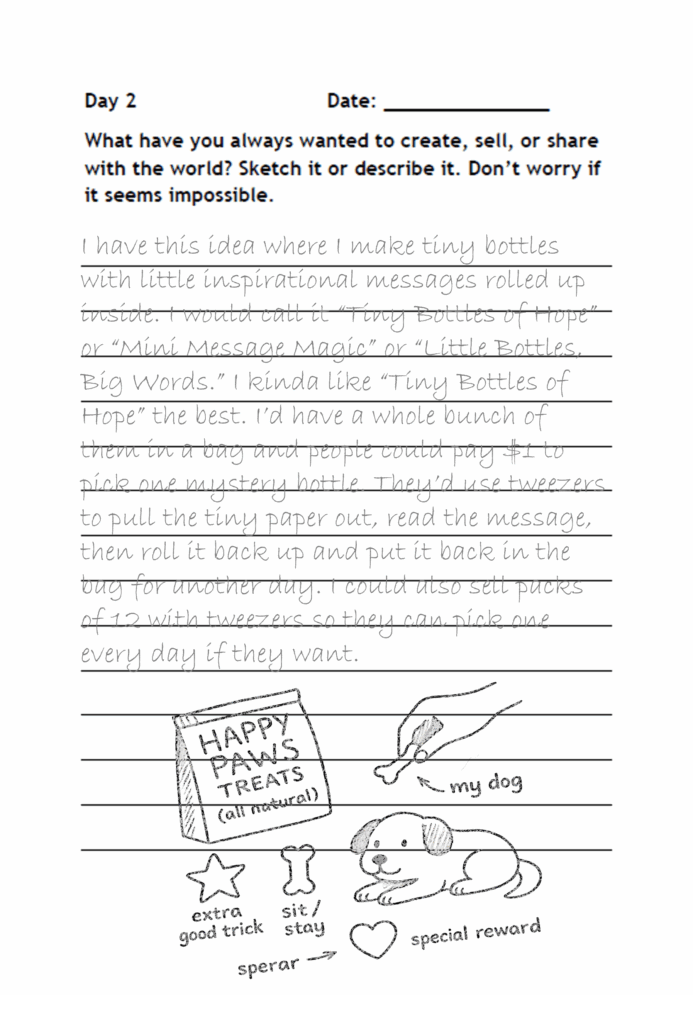 Day 2 Date: _______________
What have you always wanted to create, sell, or share
with the world? Sketch it or describe it. Don't worry if
it seems impossible.
I have this idea where I make tiny bottles
with little inspirational messages rolled up
inside. I would call it "Tiny Bottles of Hope"
or "Mini Message Magic" or "Little Bottles,
Big Words." I kinda like "Tiny Bottles of
Hope" the best. I'd have a whole bunch of
them in a bag and people could pay $1 to
pick one mystery bottle. They'd use tweezers
to pull the tiny paper out, read the message,
then roll it back up and put it back in the
bag for another day. I could also sell packs
of 12 with tweezers so they can pick one
every day if they want.
HAPPY
PAWS
TREATS
(all natural)
my dog
extra
good trick
sit/
stay
special reward
sperar